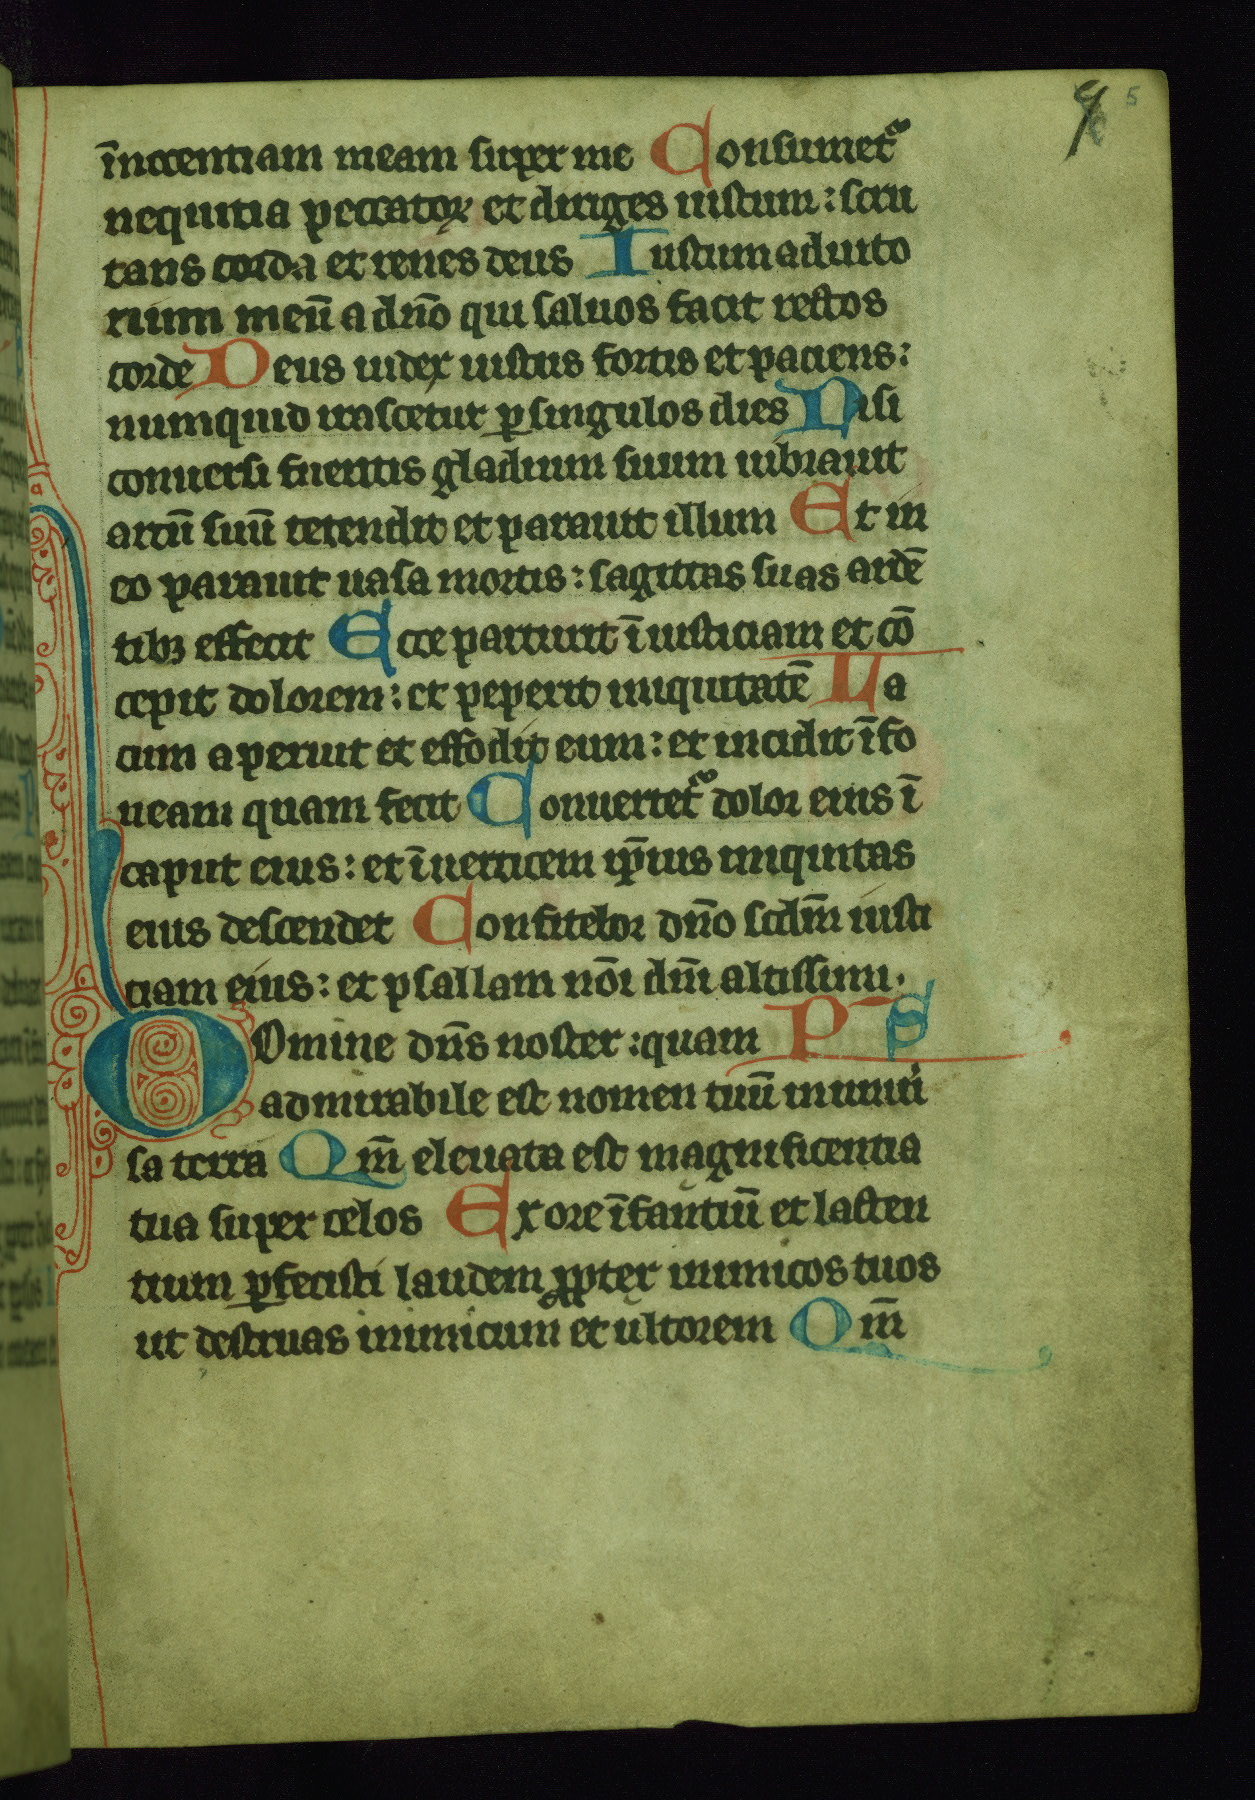 5
īnocentiam meam super me Consumet᷑
nequitia peccatoꝝ et diriges iustum : scru
tans corda et renes deus Iustum adiuto
rium meū a dn̄o qui saluos facit rectos
corde Deus iudex iustus fortis et paciens :
numquid irascetur ꝑ singulos dies Nisi
conuersi fueritis gladium suum uibrauit
arcū suū tetendit et parauit illum Et in
eo parauit uasa mortis : sagittas suas ardē
tibꝫ effecit Ecce parturit ī iusticiam et cō
cepit dolorem : et peperit iniquitatē La
cum aperuit et effodit eum : et incidit ī fo
ueam quam fecit Conuertet᷑ dolor eius ī
caput eius : et ī uerticem ip̄ius iniquitas
eius descendet Confitebor dn̄o scdm̄ iusti
ciam eius : et psallam nōi dn̄i altissimi .
Domine dn̄s noster : quam P̄S
admirabile est nomen tuū in uniu
sa terra Qm̄ eleuata est magnificentia
tua super celos Ex ore īfantiū et lacten
tium ꝑfecisti laudem ꝓpter inimicos tuos
ut destruas inimicum et ultorem Qm̄